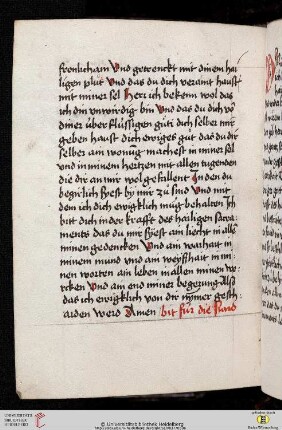 fronlichnam Vnd getrenckt mit dinem hai
ligen plůt Vnd das du dich veraint haust
mit miner sel Herr ich bekenn wol das
ich din vnwirdig bin Vnd das du dich vō
diner über flüssigen güti dich selber mir
geben haust dich ewiges gut das du dir
selber ain wonung machest in miner sel
vnd in minem hertzen mit allen tugenden
die dir an mir wolgefallent In den du
begirlich syest by mir zů sind Vnd mit
dem ich dich ewigklich mug behalten Ich
bitt dich in der krafft des hailigen sacra
ments das du mir syest ain liecht in alle
minen gedencken Vnd ain warhait in
minem mund vnd ain wyßhait in mi
nen worten ain leben in allen minen we
rcken Vnd ain end miner begerung Also
das ich ewigklich von dir nymer gesch
aiden werd Amen bit für die sund
Universitätsbibliothek Heidelberg